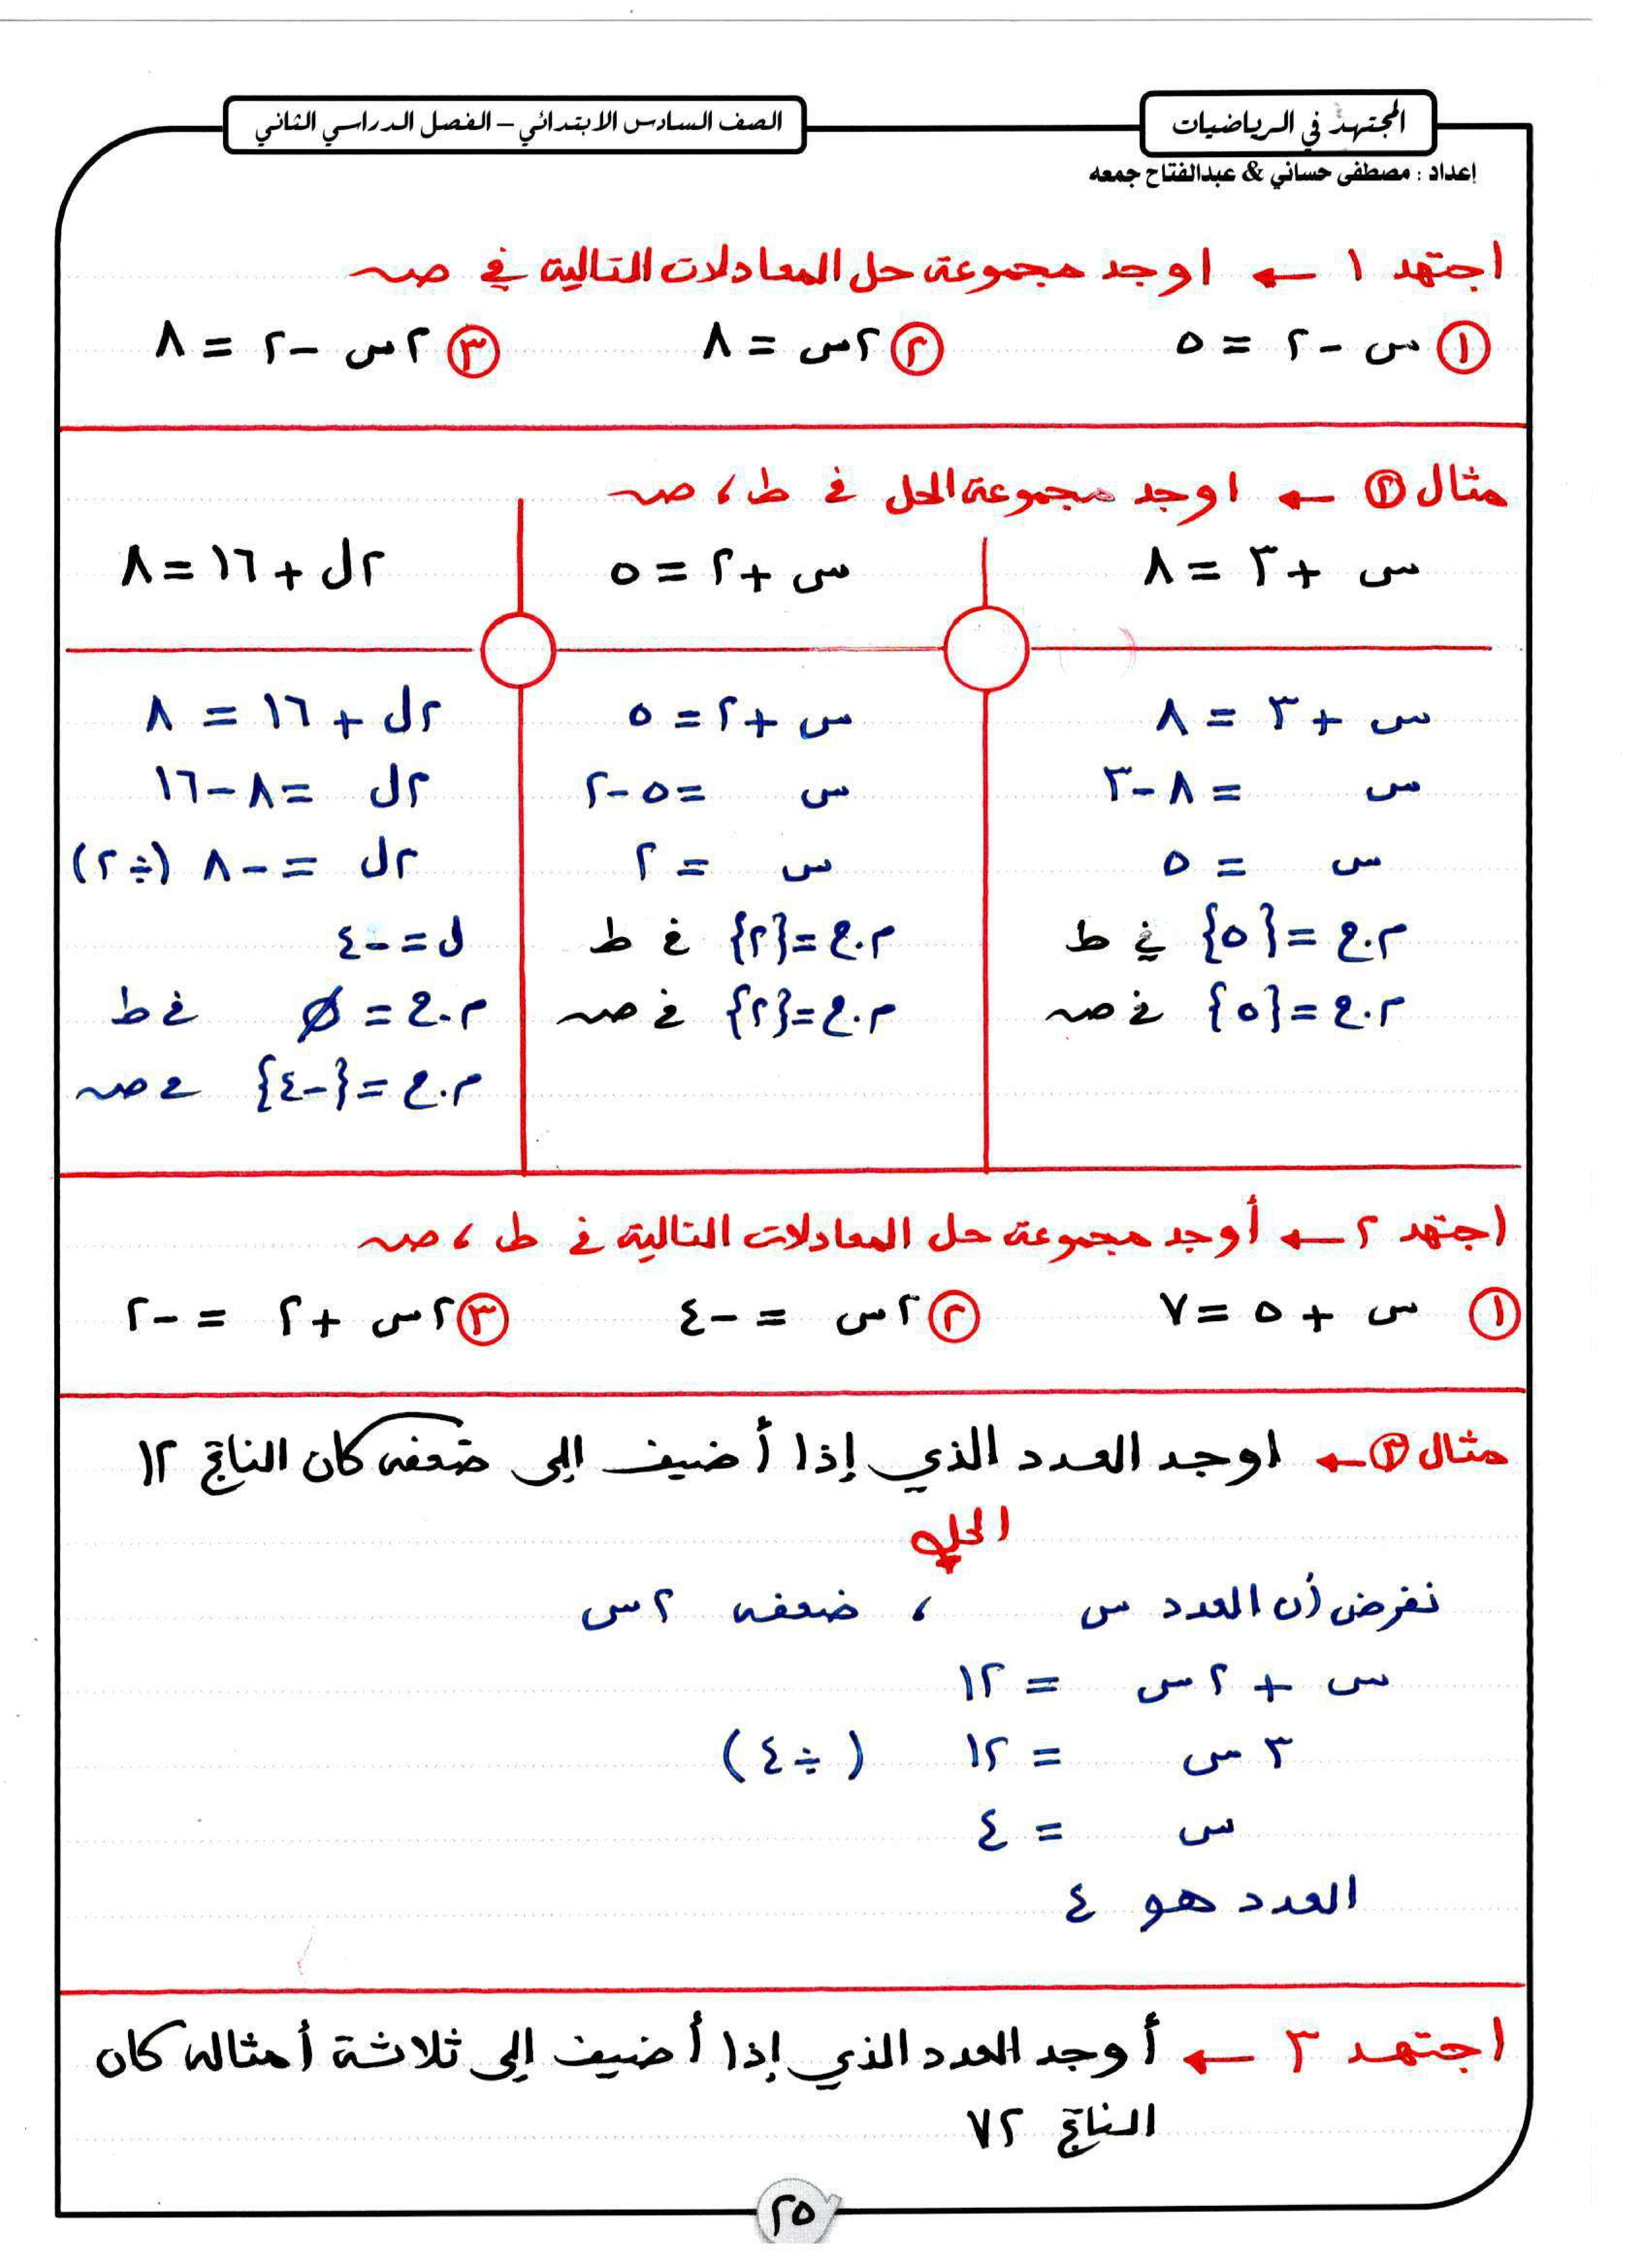 المجتهد في الرياضيات
الصف السادس الابتدائي – الفصل الدراسي الثاني
إعداد : مصطفى حساني & عبدالفتاح جمعه
اجتهد ١ ← اوجد مجموعة حل المعادلات التالية في صـ
① س - ٢ = ٥ ② ٢س = ٨ ③ ٢س - ٢ = ٨
مثال ② ← اوجد مجموعة الحل في ط ، صـ
س + ٣ = ٨
س + ٣ = ٨
س = ٨ - ٣
س = ٥
م.ح = {٥} في ط
م.ح = {٥} في صـ
س + ٢ = ٥
س + ٢ = ٥
س = ٥ - ٢
س = ٢
م.ح = {٢} في ط
م.ح = {٢} في صـ
٢ل + ١٦ = ٨
٢ل + ١٦ = ٨
٢ل = ٨ - ١٦
٢ل = - ٨ (÷ ٢)
ل = - ٤
م.ح = ∅ في ط
م.ح = {- ٤} في صـ
اجتهد ٢ ← أوجد مجموعة حل المعادلات التالية في ط ، صـ
① س + ٥ = ٧ ② ٢س = - ٤ ③ ٢س + ٢ = - ٢
مثال ③ ← اوجد العدد الذي إذا أضيف إلى ضعفه كان الناتج ١٢
الحل
نفرض أن العدد س ، ضعفه ٢س
س + ٢س = ١٢
٣س = ١٢ (÷ ٤)
س = ٤
العدد هو ٤
اجتهد ٣ ← أوجد العدد الذي إذا أضيف إلى ثلاثة أمثاله كان
الناتج ٧٢
٢٥